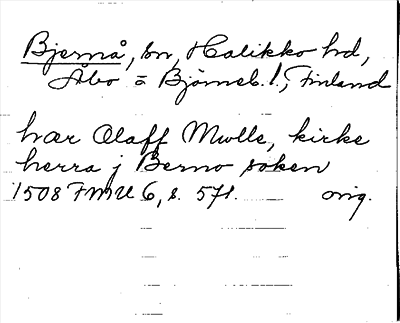 Bjernå, sn, Halikko hd,
Åbo o Björneb. l., Finland
hær Olaff Mwlle, kirke
herra j Berno soken
1508 FMU 6, s. 571. orig.